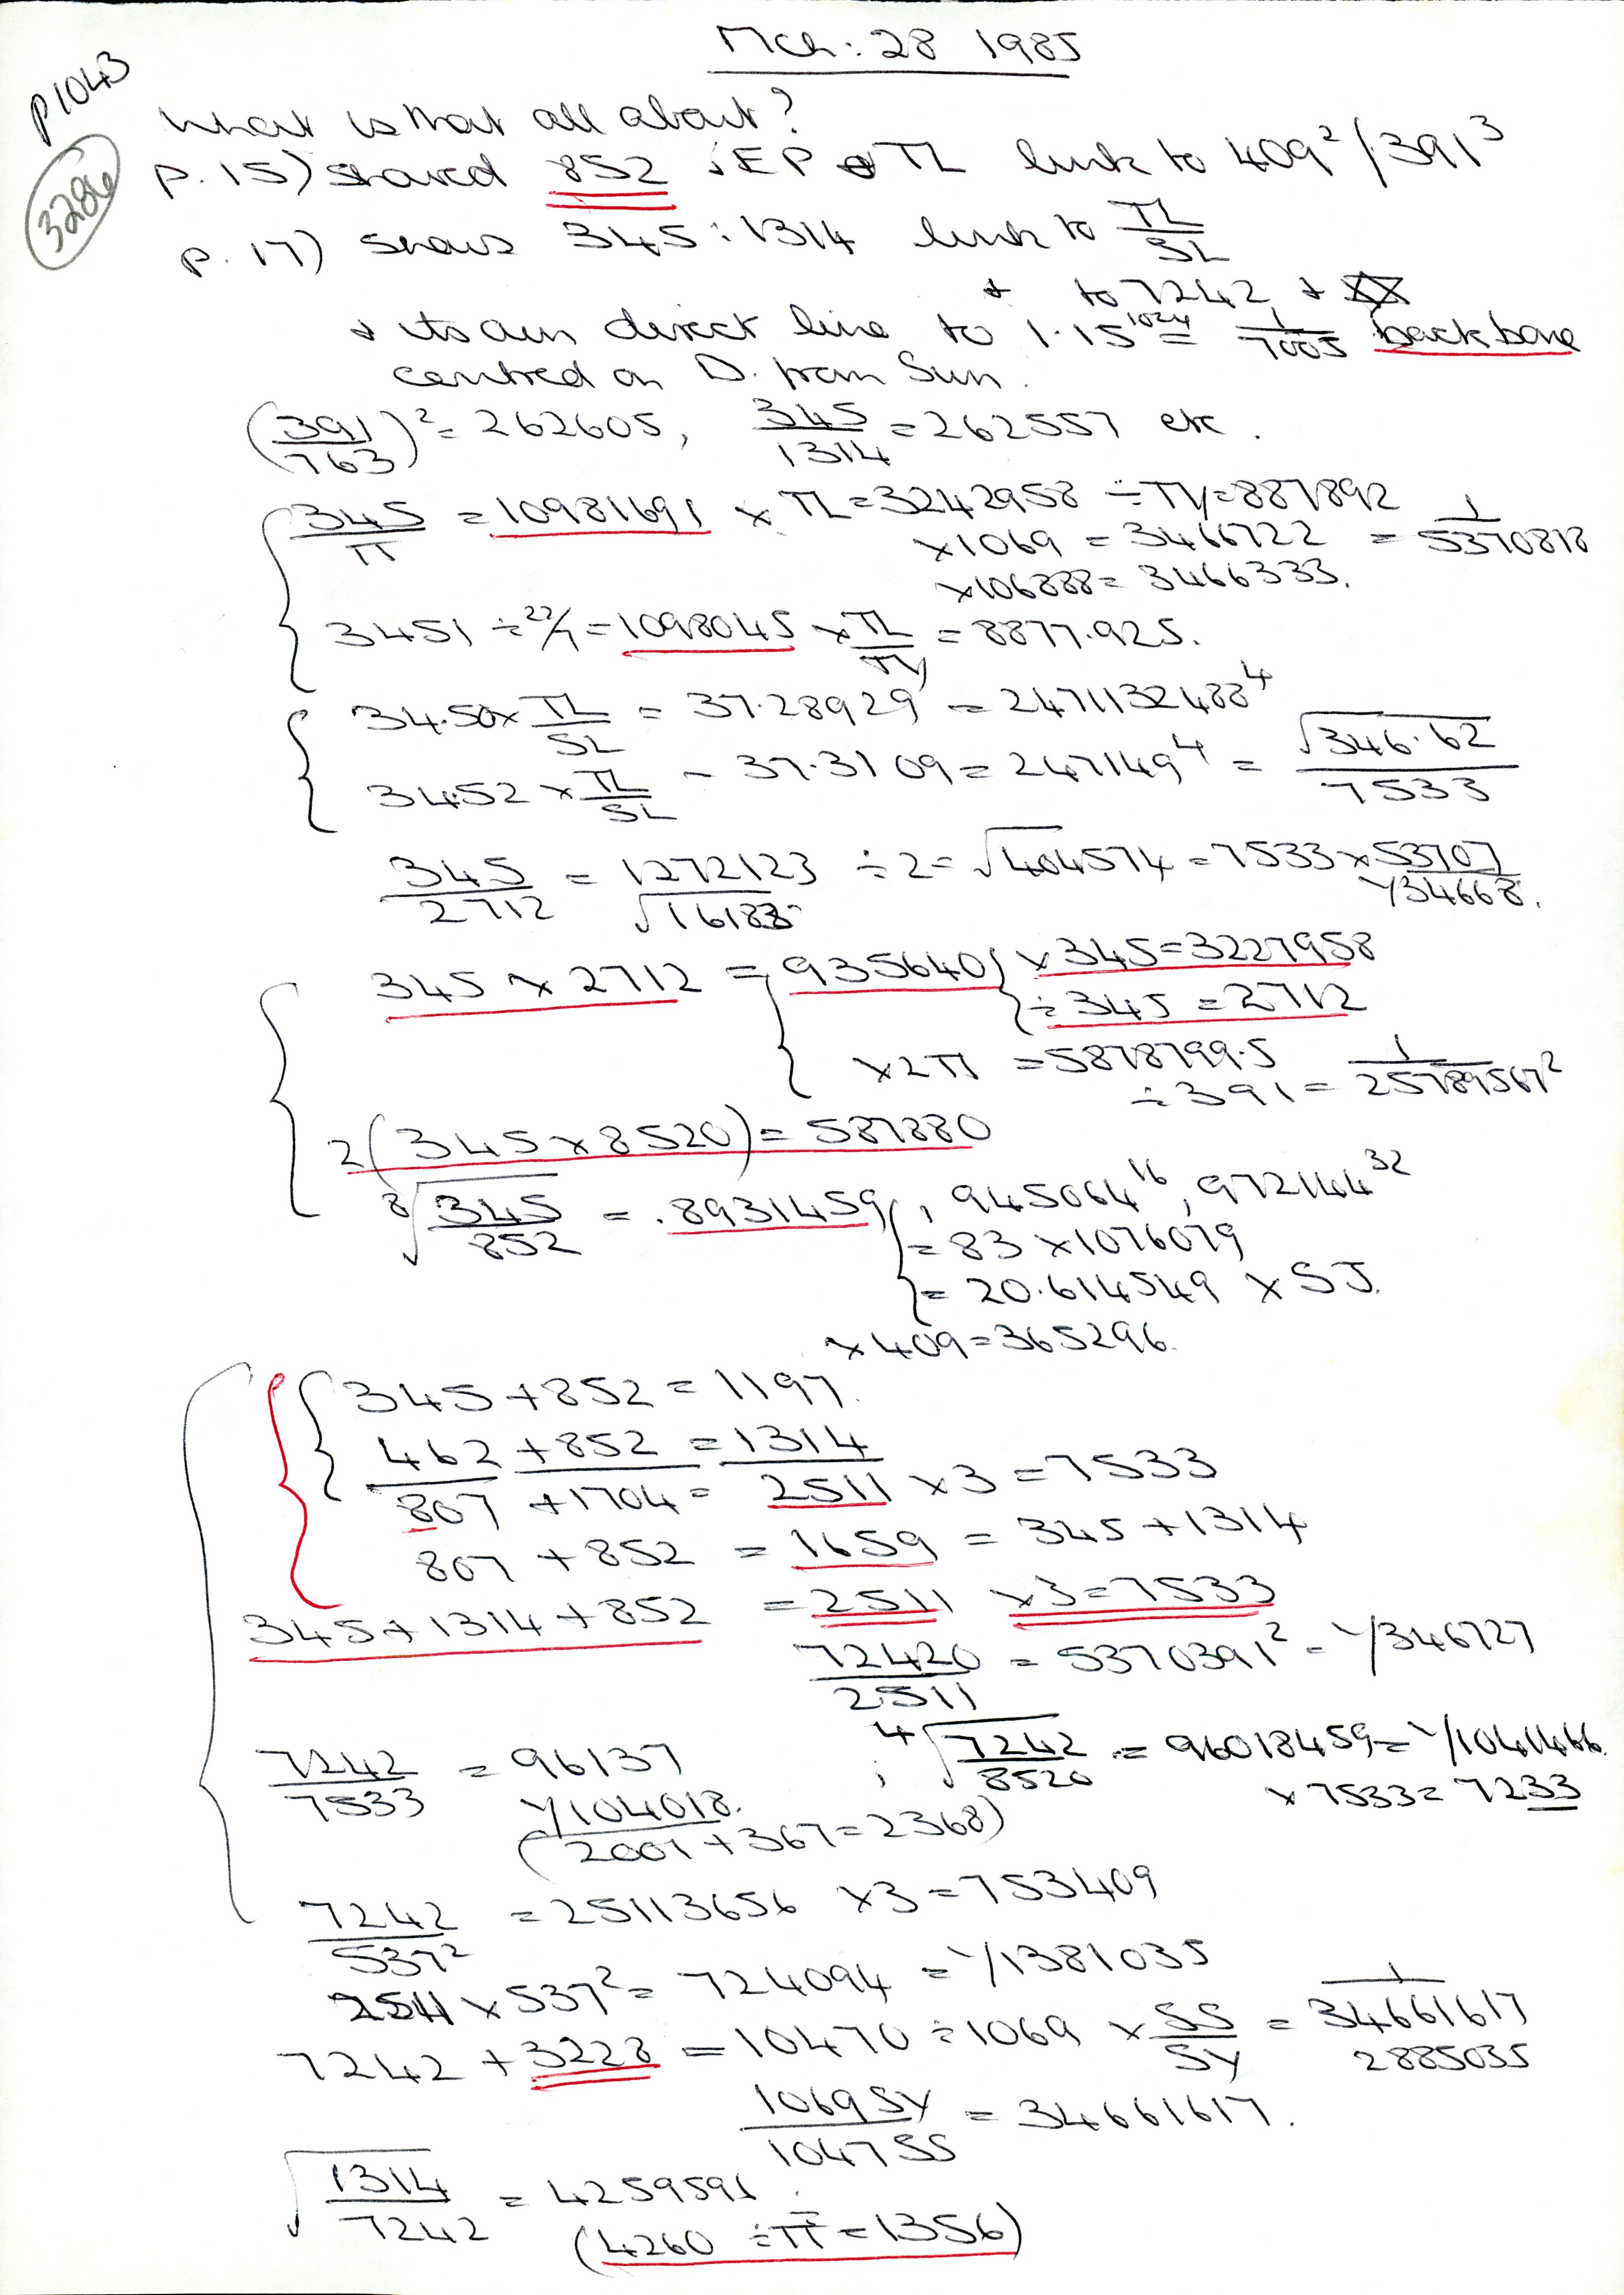 Mch: 28 1985
P1043
3286
What is that all about?
p. 15) shared 852 : EP TL link to 409²/391³
p. 17) shows 345 : 1314 link to TL/SL
+ to 7242 +
+ its own direct line to 1.15¹⁰²⁴ = 1/7005 backbone
centred on D. from Sun.
(391/763)² = 262605, 345/1314 = 262557 etc.
345/π = 10981691 × TL = 3242958 ÷ TY = 887892
×1069 = 3466722 = 1/5370818
×106888 = 3466333.
3451 ÷ 22/7 = 1098045 × TL/TY = 8877.925.
34.50 × TL/SL = 37.28929 = 2471132488⁴
3452 × TL/SL - 37.3109 = 247149⁴ = √346.62/7533
345/2712 = 1272123/√16183 ÷ 2 = √404574 = 7533 × 53707/1/34668.
345 × 2712 = 935640 } × 345 = 3227958
÷ 345 = 2712
× 2π = 5878799.5
÷ 391 = 1/25789567²
2(345 × 8520) = 587880
⁸√345/852 = .8931459, 945064¹⁶, 972144³²
= 83 × 1076079
= 20.614549 × SJ.
× 409 = 365296.
345 + 852 = 1197.
462 + 852 = 1314
807 + 1704 = 2511 × 3 = 7533
807 + 852 = 1659 = 345 + 1314
345 + 1314 + 852 = 2511 × 3 = 7533
72420/2511 = 5370391² = 1/346727
7242/7533 = 96137 ; ⁴√7242/8520 = 96018459 = 1/1041466.
1/104018. × 7533 = 7233
(2001 + 367 = 2368)
7242/537² = 25113656 × 3 = 753409
2511 × 537² = 724094 = 1/1381035
7242 + 3228 = 10470 ÷ 1069 × SS/SY = 1/34661617
2885035
1069 SY/1047 SS = 34661617.
√1314/7242 = 4259591.
(4260 ÷ π = 1356)